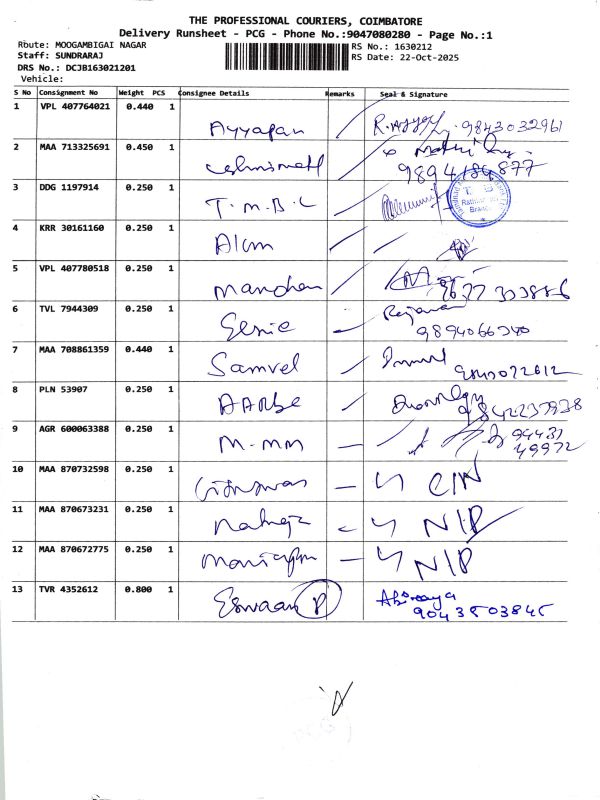 THE PROFESSIONAL COURIERS, COIMBATORE
Delivery Runsheet - PCG - Phone No.:9047080280 - Page No.:1
Route: MOOGAMBIGAI NAGAR RS No.: 1630212
Staff: SUNDRARAJ RS Date: 22-Oct-2025
DRS No.: DCJB163021201
Vehicle:
S No Consignment No Weight PCS Consignee Details Remarks Seal & Signature
1 VPL 407764021 0.440 1 Ayyapan 9843032961
2 MAA 713325691 0.450 1
3 DDG 1197914 0.250 1 T.M.B.L
4 KRR 30161160 0.250 1 Alam
5 VPL 407780518 0.250 1 Manohar
6 TVL 7944309 0.250 1 9894066340
7 MAA 708861359 0.440 1 Samvel
8 PLN 53907 0.250 1
9 AGR 600063388 0.250 1 M.MM 94431
49972
10 MAA 870732598 0.250 1
11 MAA 870673231 0.250 1 N/P
12 MAA 870672775 0.250 1 N/P
13 TVR 4352612 0.800 1 Eswaan P Abiraaya
9043503845